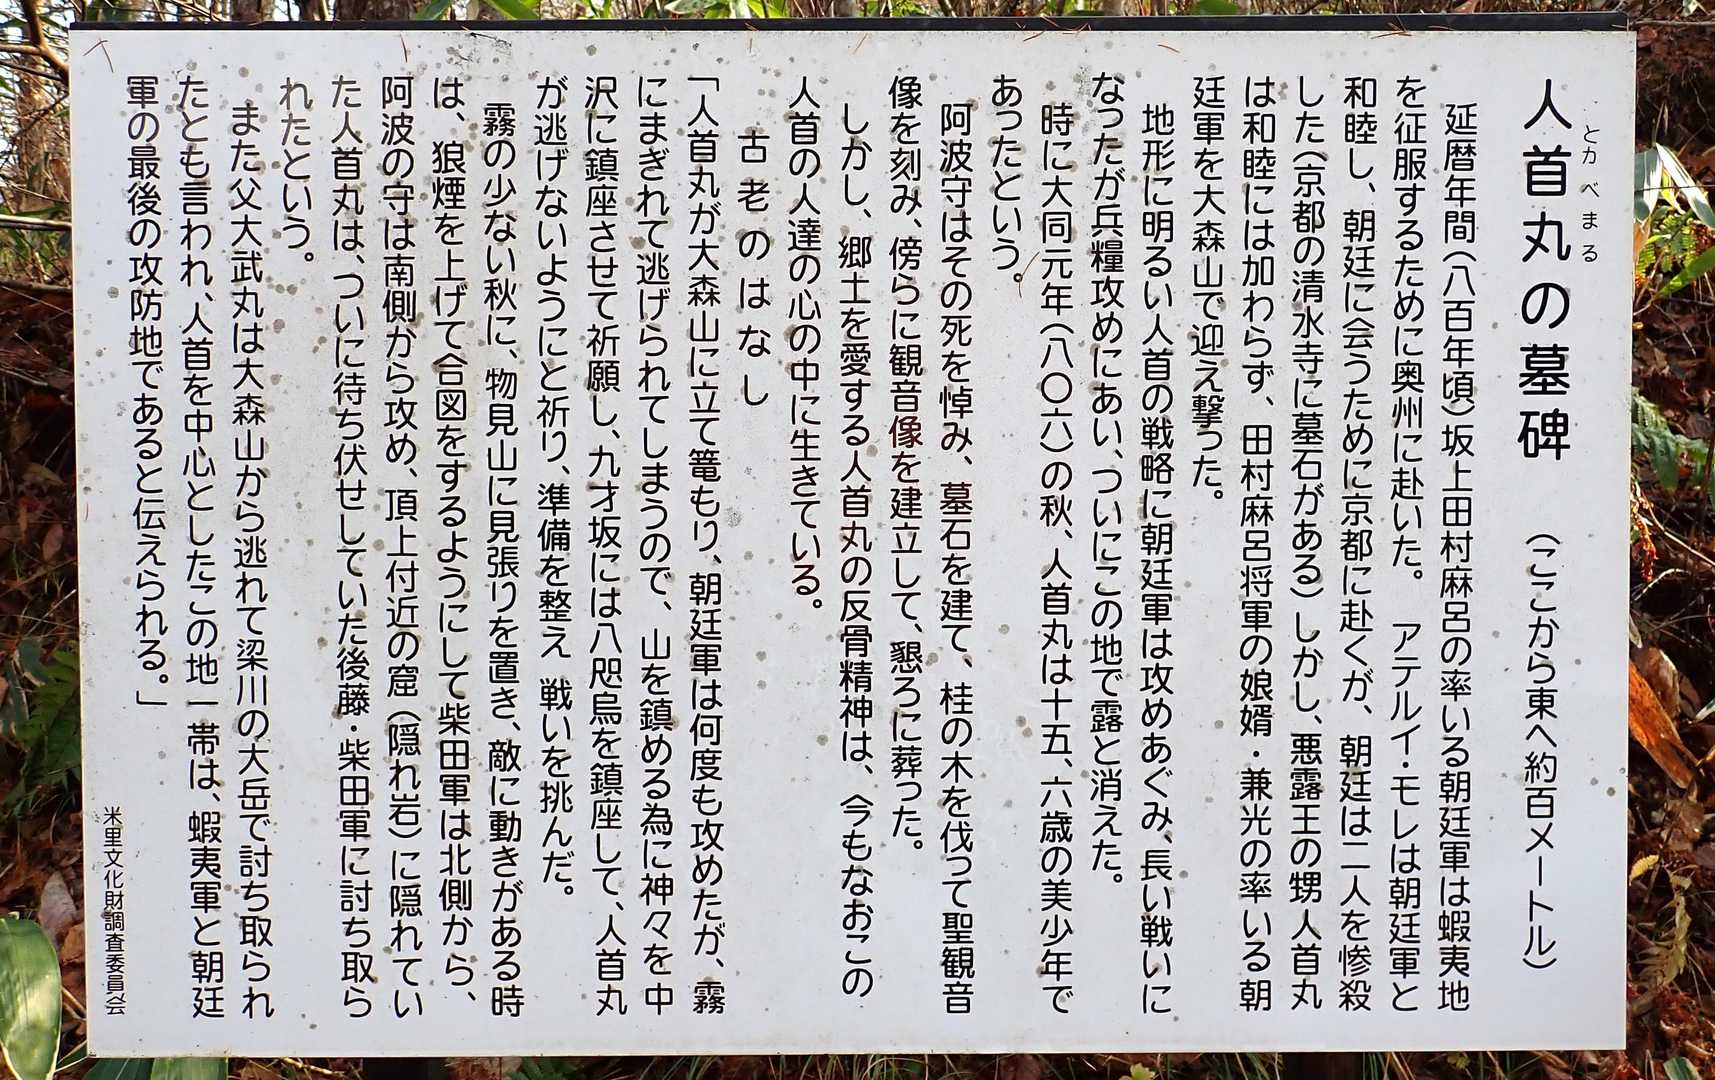 人首丸の墓碑 （ここから東へ約百メートル）
とかべまる
延暦年間（八百年頃）坂上田村麻呂の率いる朝廷軍は蝦夷地
を征服するために奥州に赴いた。 アテルイ・モレは朝廷軍と
和睦し、朝廷に会うために京都に赴くが、朝廷は二人を惨殺
した（京都の清水寺に墓石がある）しかし、悪露王の甥人首丸
は和睦には加わらず、田村麻呂将軍の娘婿・兼光の率いる朝
廷軍を大森山で迎え撃った。
地形に明るい人首の戦略に朝廷軍は攻めあぐみ、長い戦いに
なったが兵糧攻めにあい、ついにこの地で露と消えた。
時に大同元年（八〇六）の秋、人首丸は十五、六歳の美少年で
あったという。
阿波守はその死を悼み、墓石を建て、桂の木を伐って聖観音
像を刻み、傍らに観音像を建立して、懇ろに葬った。
しかし、郷土を愛する人首丸の反骨精神は、今もなおこの
人首の人達の心の中に生きている。
古老のはなし
「人首丸が大森山に立て篭もり、朝廷軍は何度も攻めたが、霧
にまぎれて逃げられてしまうので、山を鎮める為に神々を中
沢に鎮座させて祈願し、九才坂には八咫烏を鎮座して、人首丸
が逃げないようにと祈り、準備を整え 戦いを挑んだ。
霧の少ない秋に、物見山に見張りを置き、敵に動きがある時
は、狼煙を上げて合図をするようにして柴田軍は北側から、
阿波の守は南側から攻め、頂上付近の窟（隠れ岩）に隠れてい
た人首丸は、ついに待ち伏せしていた後藤・柴田軍に討ち取ら
れたという。
また父大武丸は大森山から逃れて梁川の大岳で討ち取られ
たとも言われ、人首を中心としたこの地一帯は、蝦夷軍と朝廷
軍の最後の攻防地であると伝えられる。」
米里文化財調査委員会